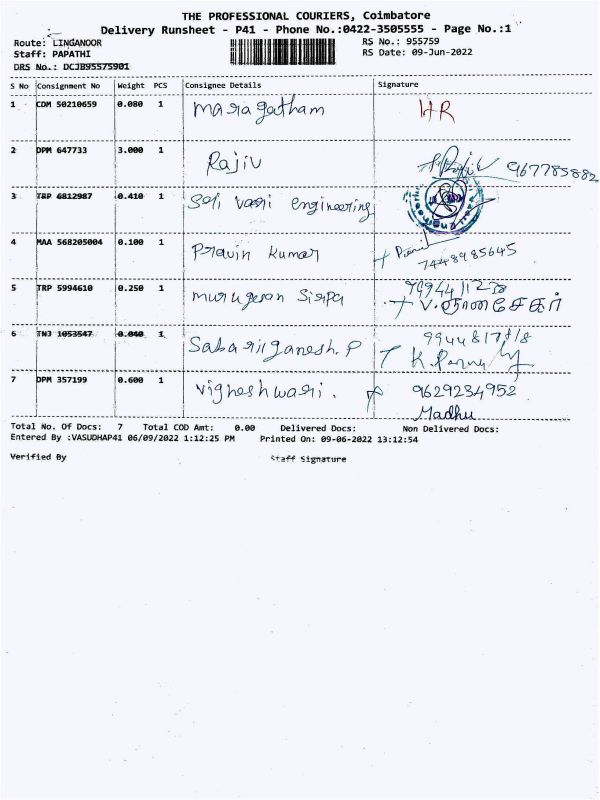 THE PROFESSIONAL COURIERS, Coimbatore
Delivery Runsheet - P41 - Phone No.:0422-3505555 - Page No.:1
Route: LINGANOOR RS No.: 955759
Staff: PAPATHI RS Date: 09-Jun-2022
DRS No.: DCJB95575901
S No Consignment No Weight PCS Consignee Details Signature
1 CDM 50210659 0.080 1 Maragatham HR
2 DPM 647733 3.000 1 Rajiv 967785882
3 TRP 6812987 0.410 1 engineering
4 MAA 568205004 0.100 1 Pravin Kumar 7448985645
5 TRP 5994610 0.250 1 murugesan V.ஞானசேகர்
6 TNJ 1053547 0.040 1 Sabariganesh.P 9944817818
7 DPM 357199 0.600 1 Vigneshwari. 9629234952
Madhu
Total No. Of Docs: 7 Total COD Amt: 0.00 Delivered Docs: Non Delivered Docs:
Entered By :VASUDHAP41 06/09/2022 1:12:25 PM Printed On: 09-06-2022 13:12:54
Verified By Staff Signature